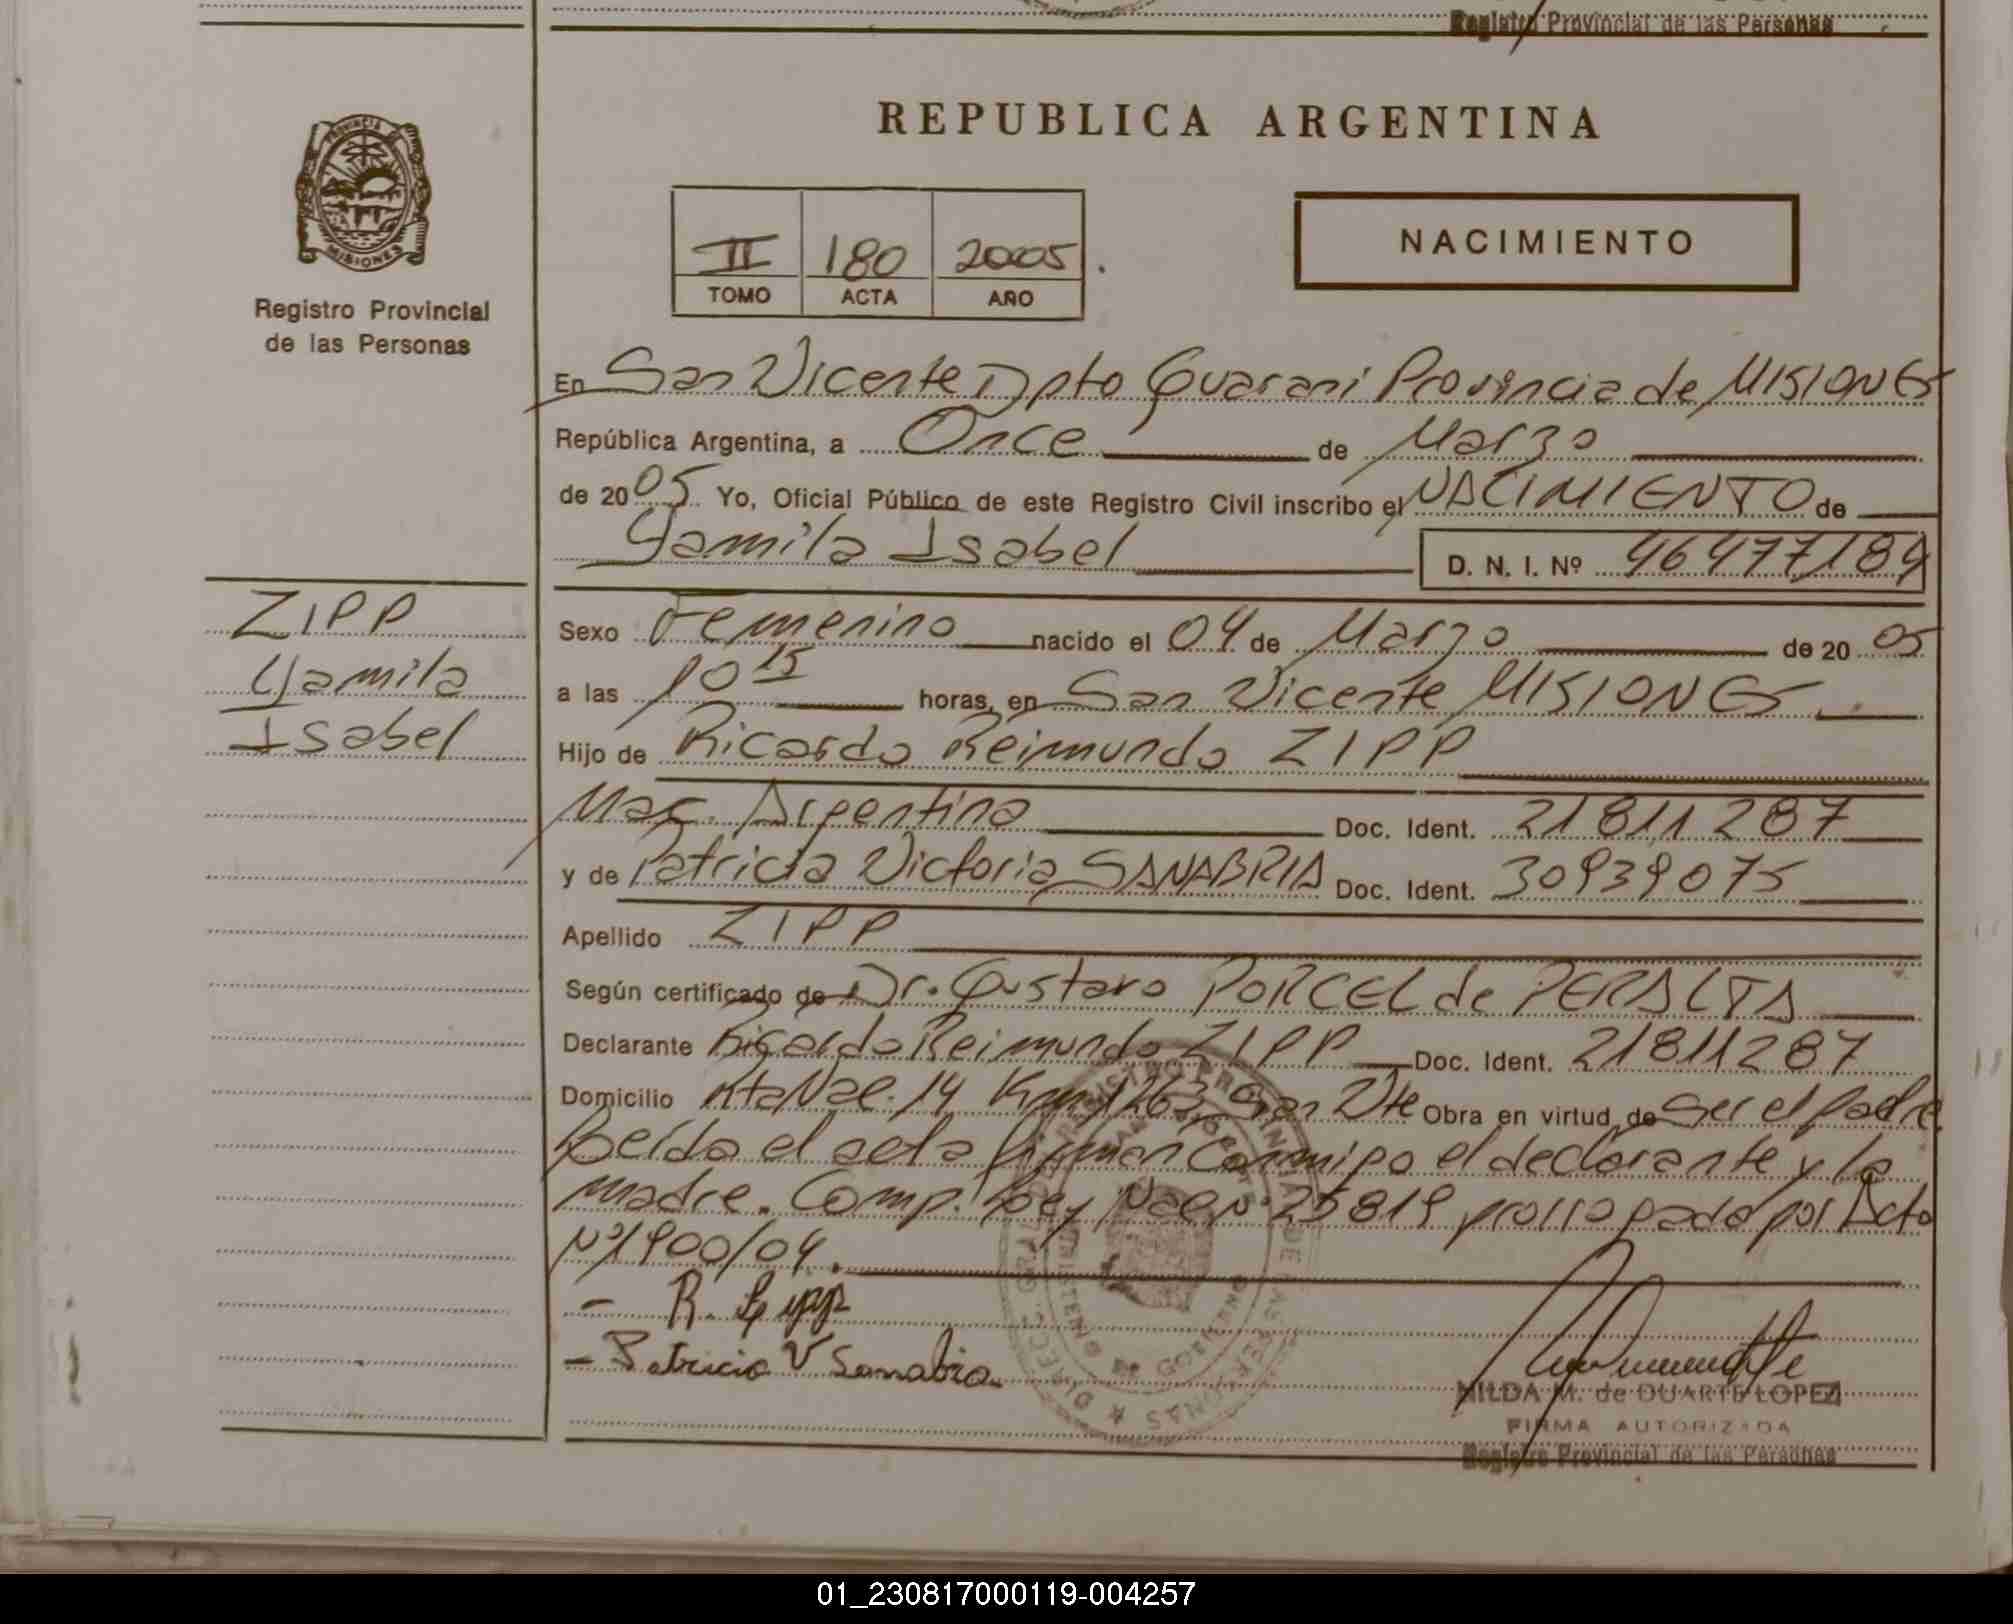 Registro Provincial de las Personas
PROVINCIA DE
MISIONES
Registro Provincial
de las Personas
REPUBLICA ARGENTINA
II 180 2005.
TOMO ACTA AÑO
NACIMIENTO
En San Vicente Dpto Guarani Provincia de MISIONES
República Argentina, a Once de Marzo
de 2005 Yo, Oficial Público de este Registro Civil inscribo el NACIMIENTO de
Yamila Isabel D. N. I. Nº 46477184
ZIPP
Yamila
Isabel
Sexo Femenino nacido el 04 de Marzo de 20 05
a las 10 15 horas, en San Vicente MISIONES
Hijo de Ricardo Reimundo ZIPP
Nac. Argentina Doc. Ident. 21811287
y de Patricia Victoria SANABRIA Doc. Ident. 30939075
Apellido ZIPP
Según certificado de Dr. Gustavo PORCEL de PERALTA
Declarante Ricardo Reimundo ZIPP Doc. Ident. 21811287
Domicilio Rta Nac. 14 Km 1263 San Vte Obra en virtud de ser el padre.
Leída el acta firman conmigo el declarante y la
madre. Comp. Ley Nac Nº 25819 prorrogado por Dcto
Nº 1900/04.
- R. Zipp
- Patricia V Sanabria
NILDA M. de DUARTE LOPEZ
FIRMA AUTORIZADA
Registro Provincial de las Personas
01_230817000119-004257